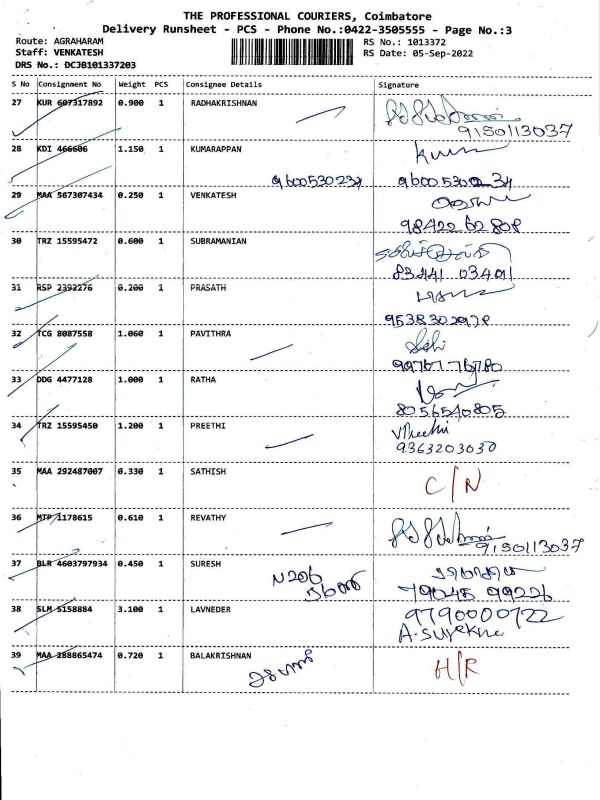 THE PROFESSIONAL COURIERS, Coimbatore
Delivery Runsheet - PCS - Phone No.:0422-3505555 - Page No.:3
Route: AGRAHARAM
RS No.: 1013372
Staff: VENKATESH
RS Date: 05-Sep-2022
DRS No.: DCJB101337203
S No Consignment No Weight PCS Consignee Details Signature
27 KUR 607317892 0.900 1 RADHAKRISHNAN
9150113037
28 KDI 466606 1.150 1 KUMARAPPAN
9600530234 9600530234
29 MAA 567307434 0.250 1 VENKATESH
98422 62808
30 TRZ 15595472 0.600 1 SUBRAMANIAN
83441 03401
31 RSP 2392276 0.200 1 PRASATH
9538302978
32 TCG 8087558 1.060 1 PAVITHRA
33 DDG 4477128 1.000 1 RATHA
8056540805
34 TRZ 15595450 1.200 1 PREETHI V Preethi
9363203030
35 MAA 292487007 0.330 1 SATHISH C/N
36 MTP 1178615 0.610 1 REVATHY
9150113037
37 BLR 4603797934 0.450 1 SURESH
79045 99226
38 SLM 5158884 3.100 1 LAVNEDER 9790000722
A. Surekha
39 MAA 288865474 0.720 1 BALAKRISHNAN H/R